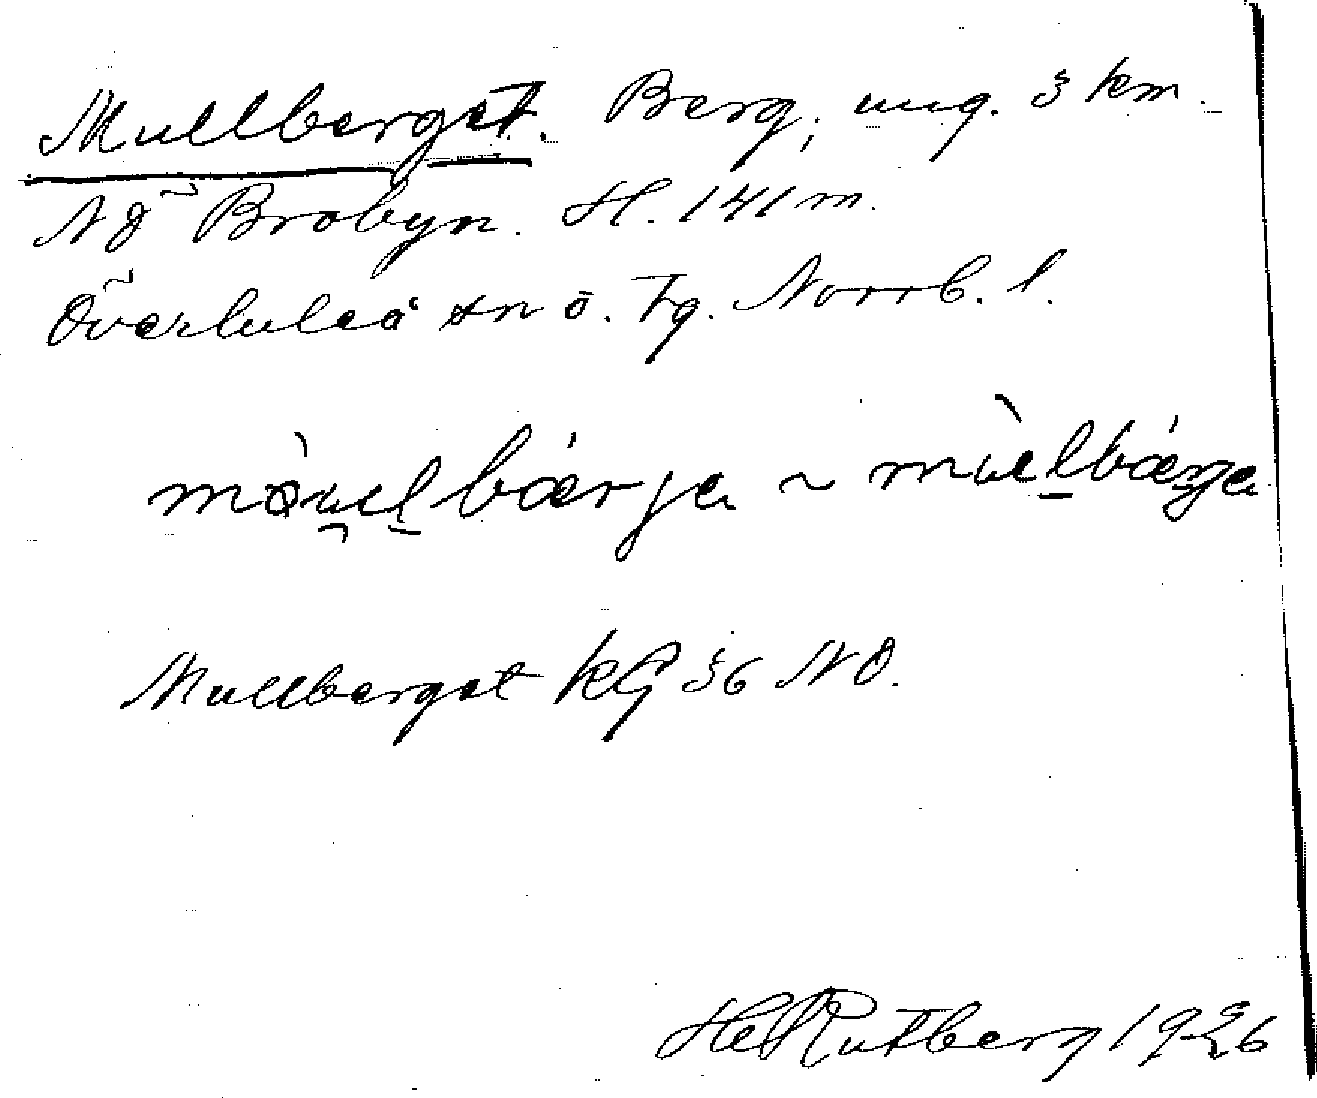 Mullberget. Berg, ung. 3 km.
NÖ Brobyn. H. 141 m.
Överluleå sn ö. Tg. Norrb. l.
mòu̯l̲bárja ~ mùl̲bárja
Mullberget KG 36 NO.
H Rutberg 1926